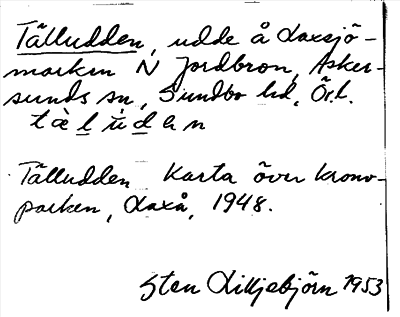 Tälludden, udde å Laxsjö-
marken N Jordbron, Asker-
sunds sn, Sundbo hd, Ör.l.
tὰluden
Tälludden Karta över krono-
parken, Laxå, 1948.
Sten Lilljebjörn 1953